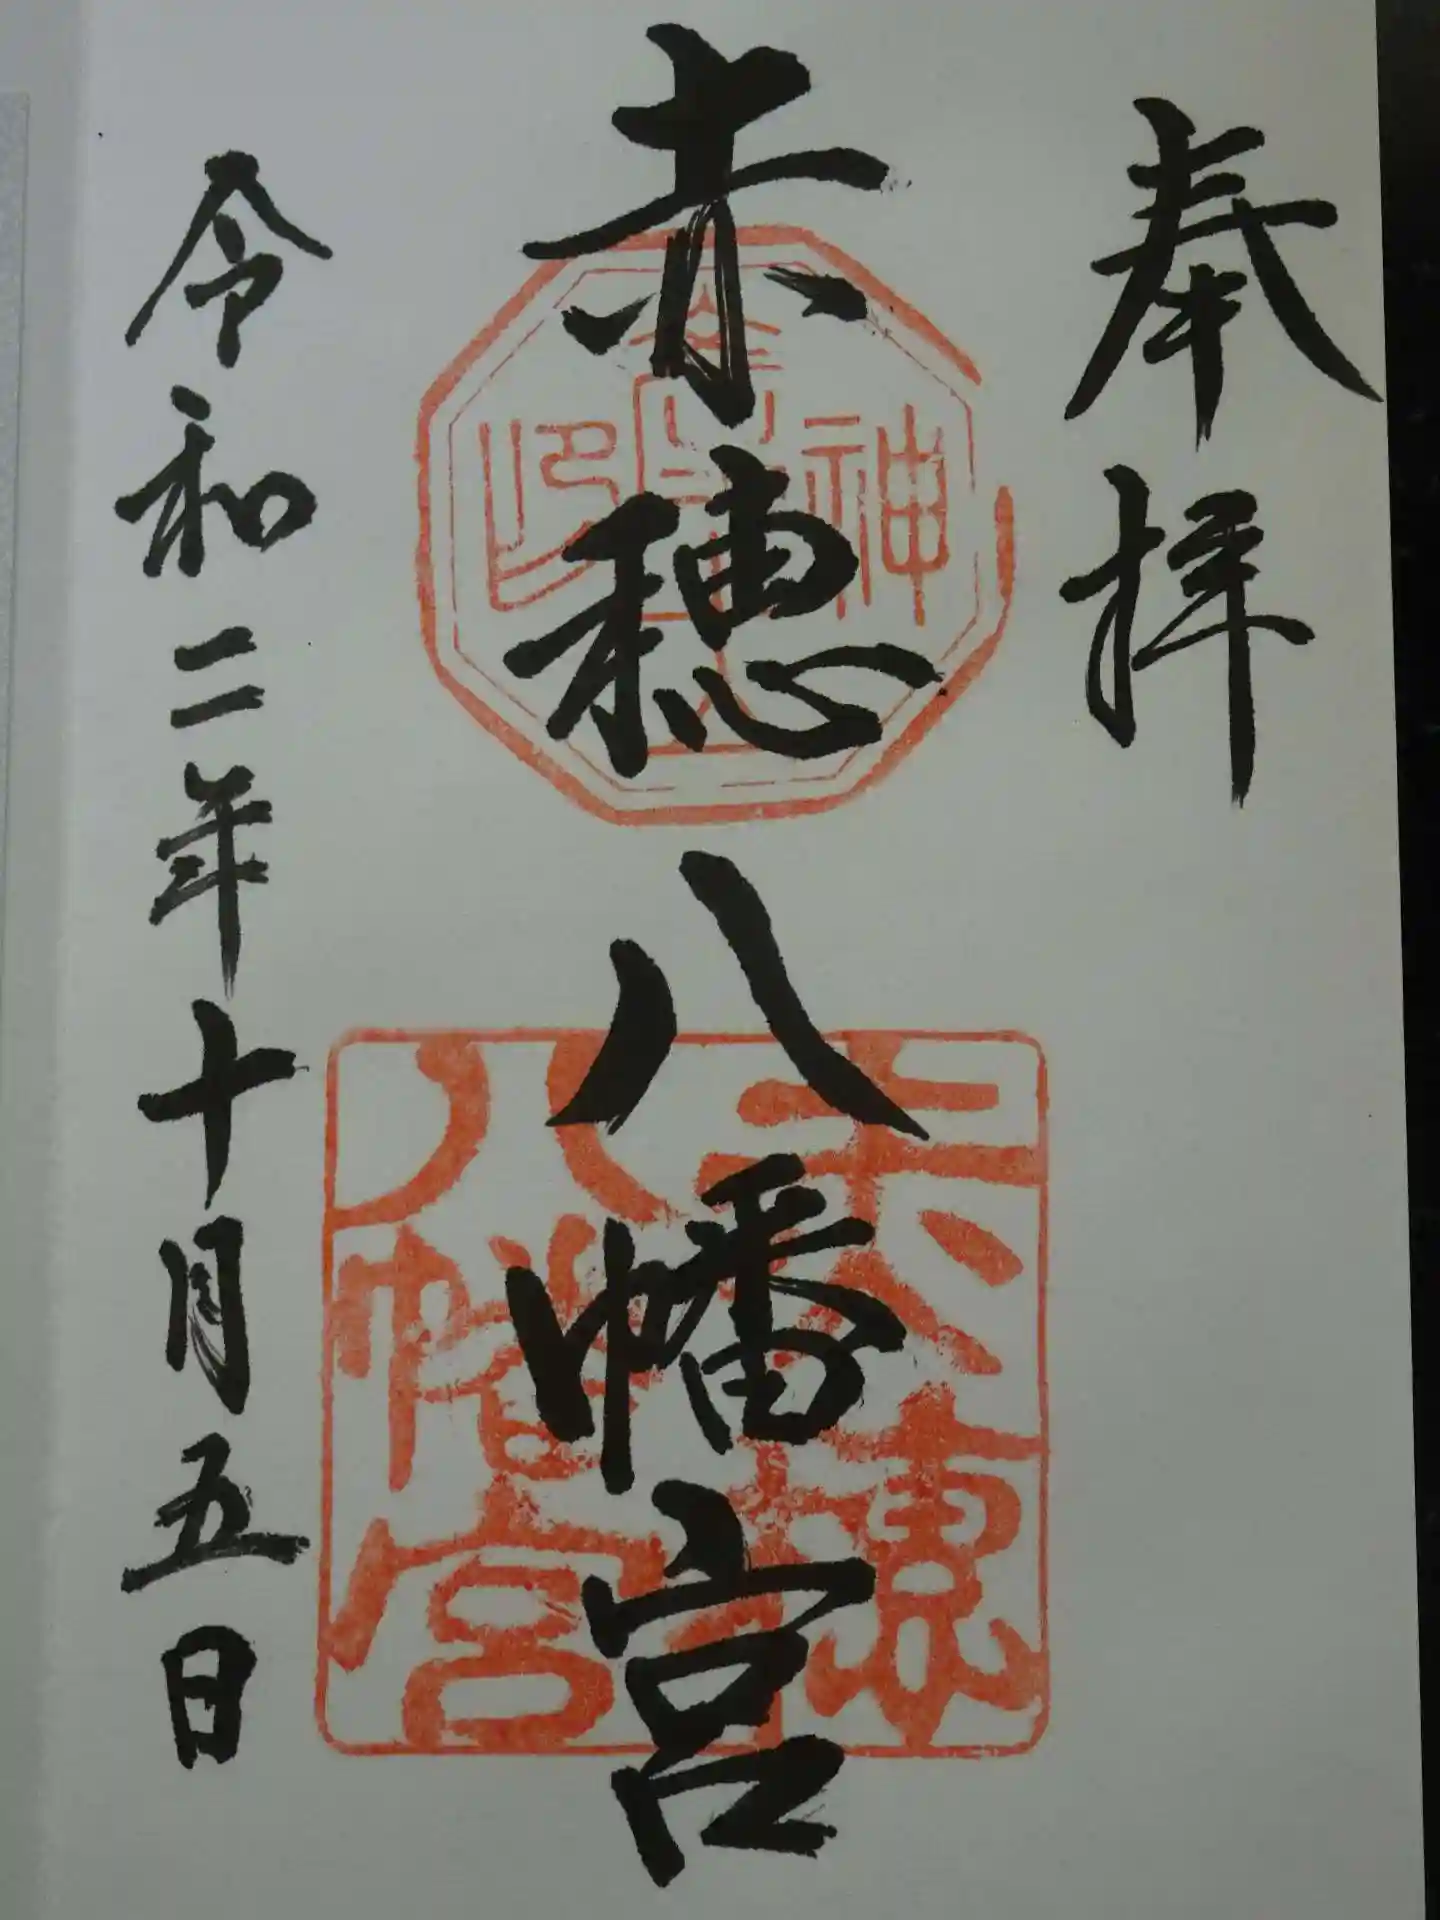 奉拝
赤穂八幡宮
令和二年十月五日
赤穂
八幡宮